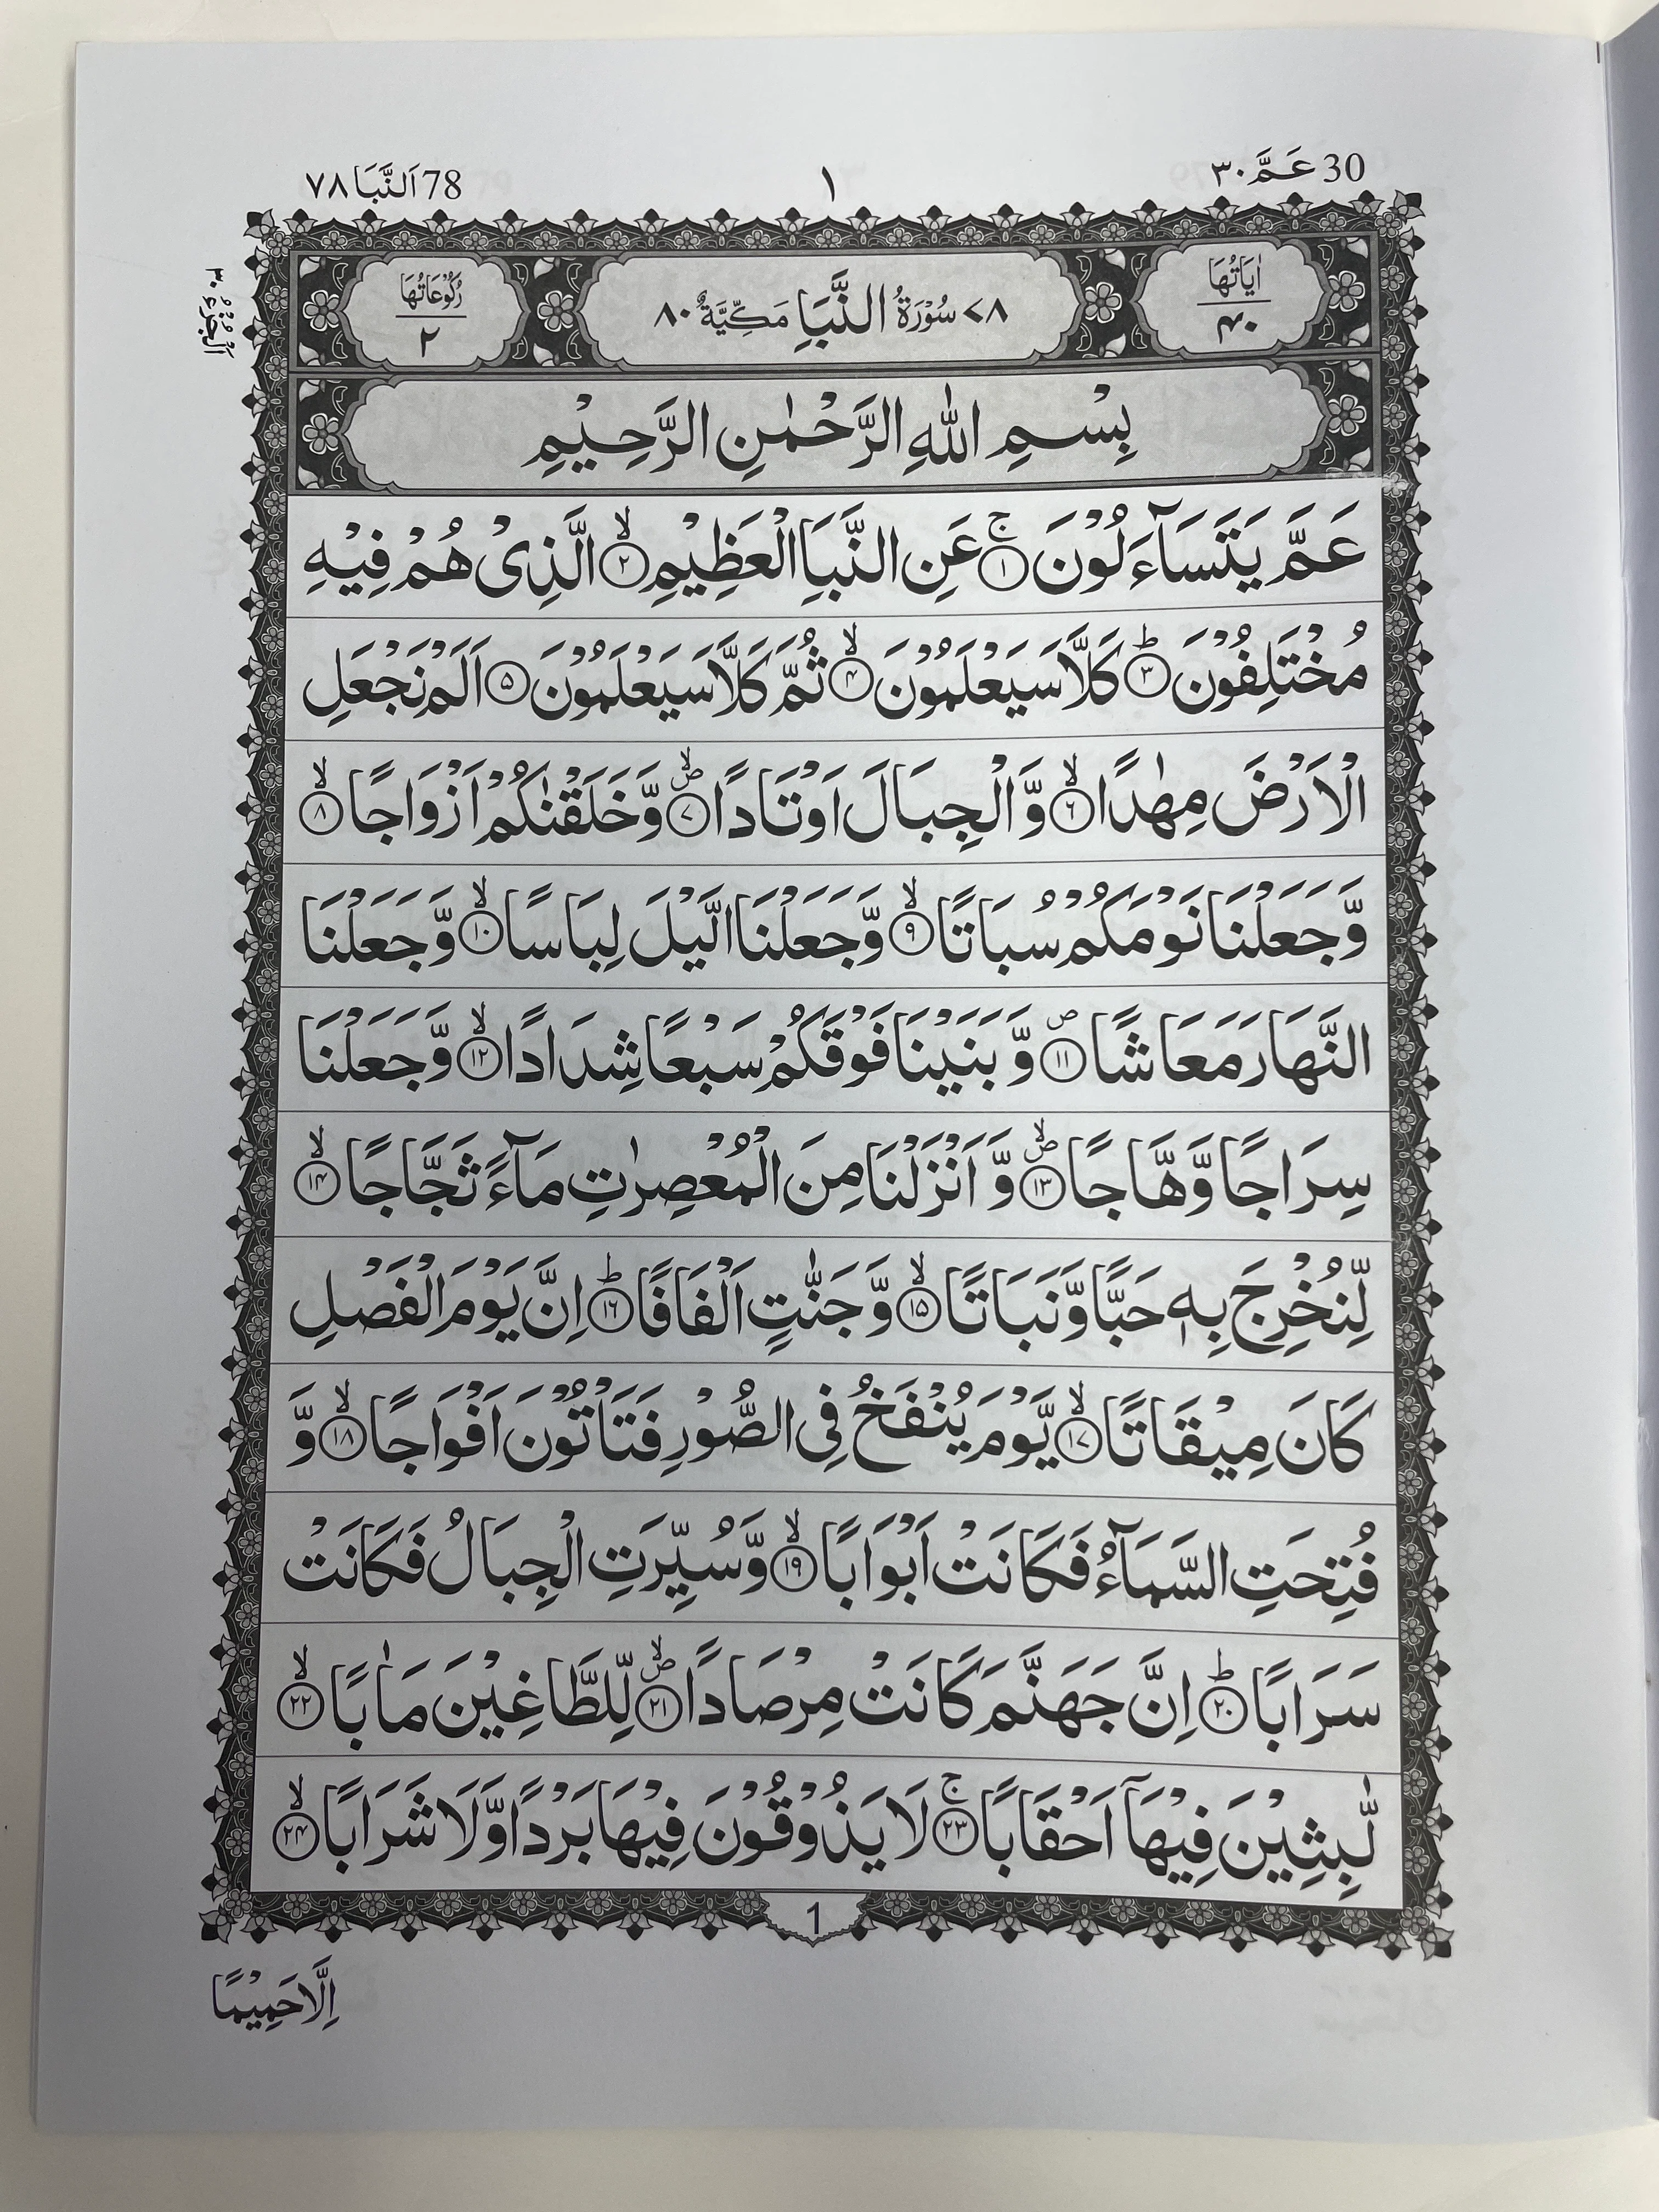 30 عَمَّ ٣٠
١
78 اَلنَّبَا ٧٨
اٰیَاتُهَا
۴۰
٧٨ سُوْرَةُ النَّبَاِ مَكِّیَّةٌ ٨٠
رُكُوْعَاتُهَا
٢
اَلْجُزْءُ ٣٠
بِسْمِ اللّٰهِ الرَّحْمٰنِ الرَّحِیْمِ
عَمَّ یَتَسَآءَلُوْنَ ۚ﴿١﴾ عَنِ النَّبَاِ الْعَظِیْمِ ۙ﴿٢﴾ الَّذِیْ هُمْ فِیْهِ
مُخْتَلِفُوْنَ ؕ﴿٣﴾ كَلَّا سَیَعْلَمُوْنَ ۙ﴿۴﴾ ثُمَّ كَلَّا سَیَعْلَمُوْنَ ﴿۵﴾ اَلَمْ نَجْعَلِ
الْاَرْضَ مِهٰدًا ۙ﴿۶﴾ وَّ الْجِبَالَ اَوْتَادًا ۪ۙ﴿٧﴾ وَّخَلَقْنٰكُمْ اَزْوَاجًا ۙ﴿٨﴾
وَّجَعَلْنَا نَوْمَكُمْ سُبَاتًا ۙ﴿٩﴾ وَّجَعَلْنَا الَّیْلَ لِبَاسًا ۙ﴿١٠﴾ وَّجَعَلْنَا
النَّهَارَ مَعَاشًا ۪﴿١١﴾ وَّ بَنَیْنَا فَوْقَكُمْ سَبْعًا شِدَادًا ۙ﴿١٢﴾ وَّجَعَلْنَا
سِرَاجًا وَّهَّاجًا ۪ۙ﴿١٣﴾ وَّ اَنْزَلْنَا مِنَ الْمُعْصِرٰتِ مَآءً ثَجَّاجًا ۙ﴿١۴﴾
لِّنُخْرِجَ بِهٖ حَبًّا وَّنَبَاتًا ۙ﴿١۵﴾ وَّ جَنّٰتٍ اَلْفَافًا ؕ﴿١۶﴾ اِنَّ یَوْمَ الْفَصْلِ
كَانَ مِیْقَاتًا ۙ﴿١٧﴾ یَّوْمَ یُنْفَخُ فِی الصُّوْرِ فَتَاْتُوْنَ اَفْوَاجًا ۙ﴿١٨﴾ وَّ
فُتِحَتِ السَّمَآءُ فَكَانَتْ اَبْوَابًا ۙ﴿١٩﴾ وَّ سُیِّرَتِ الْجِبَالُ فَكَانَتْ
سَرَابًا ؕ﴿٢٠﴾ اِنَّ جَهَنَّمَ كَانَتْ مِرْصَادًا ۪ۙ﴿٢١﴾ لِّلطَّاغِیْنَ مَاٰبًا ۙ﴿٢٢﴾
لّٰبِثِیْنَ فِیْهَاۤ اَحْقَابًا ۚ﴿٢٣﴾ لَا یَذُوْقُوْنَ فِیْهَا بَرْدًا وَّلَا شَرَابًا ۙ﴿٢۴﴾
1
اِلَّا حَمِیْمًا